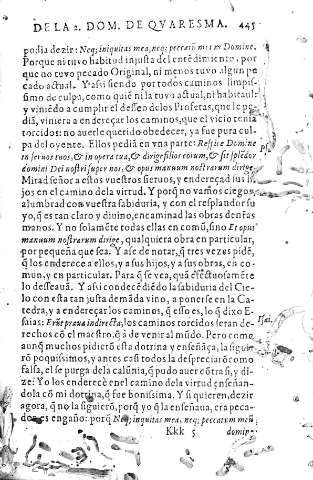 DE LA 2. DOM. DE QVARESMA. 445
podia dezir: Neq; iniquitas mea, neq; peccatũ meũ Domine.
Porque ni tuvo habitud injusta del entẽdimiento, por
que no tuvo pecado Original, ni menos tuvo algun pe
cado actual. Y assi siendo por todos caminos limpis-
simo de culpa, como quiẽ ni la tuvo actual, ni habitual:
y viniẽdo a cumplir el desseo delos Profetas, que le pe
diã, viniera a endereçar los caminos, que el vicio tenia
torcidos: no auerle querido obedecer, ya fue pura cul-
pa del oyente. Ellos pediã en vna parte: Respice Domine
in seruos tuos, & in opera tua, & dirige filios eorum, & sit splẽdor
domini Dei nostri super nos, & opus manuum nostrarum dirige.
Mirad señor a estos vuestros sieruos, y endereçad sus hi
jos en el camino dela virtud. Y porq̃ no vamos ciegos,
alumbrad con vuestra sabiduria, y con el resplandor su
yo, q̃ es tan claro y diuino, encaminad las obras denras
manos. Y no solamẽte todas ellas en comũ, sino Et opus
manuum nostrarum dirige, qualquiera obra en particular,
por pequeña que sea. Y assi de notar, q̃ tres vezes pidẽ
q̃ los enderece a ellos, y a sus hijos, y a sus obras, en co-
mun, y en particular. Para q̃ se vea, quã effectuosamẽte
lo desseauã. Y assi condecẽdiẽdo la sabiduria del Cie-
lo con esta tan justa demãda vino, a ponerse en la Ca-
tedra, y a endereçar los caminos, q̃ esso es, lo q̃ dixo E
saias: Erũt praua in directa, los caminos torcidos seran de-
rechos cõ el maestro, q̃ à de venir al mũdo. Pero como
aunq̃ muchos pidierõ esta dotrina y enseñãça, la siguie
rõ poquissimos, y antes casi todos la despreciarõ como
falsa, el se purga dela calũnia, q̃ pudo auer cõtra si, y di-
ze: Yo los enderecè en el camino dela virtud enseñan-
dola cõ mi dotrina, q̃ fue bonissima. Y si quieren, dezir
agora, q̃ no la siguierõ, porq̃ yo q̃ la enseñaua, era peca-
dor es engaño: porq̃ Neq; iniquitas mea, neq; peccatum meũ
Kkk 5 domi-
Isai.